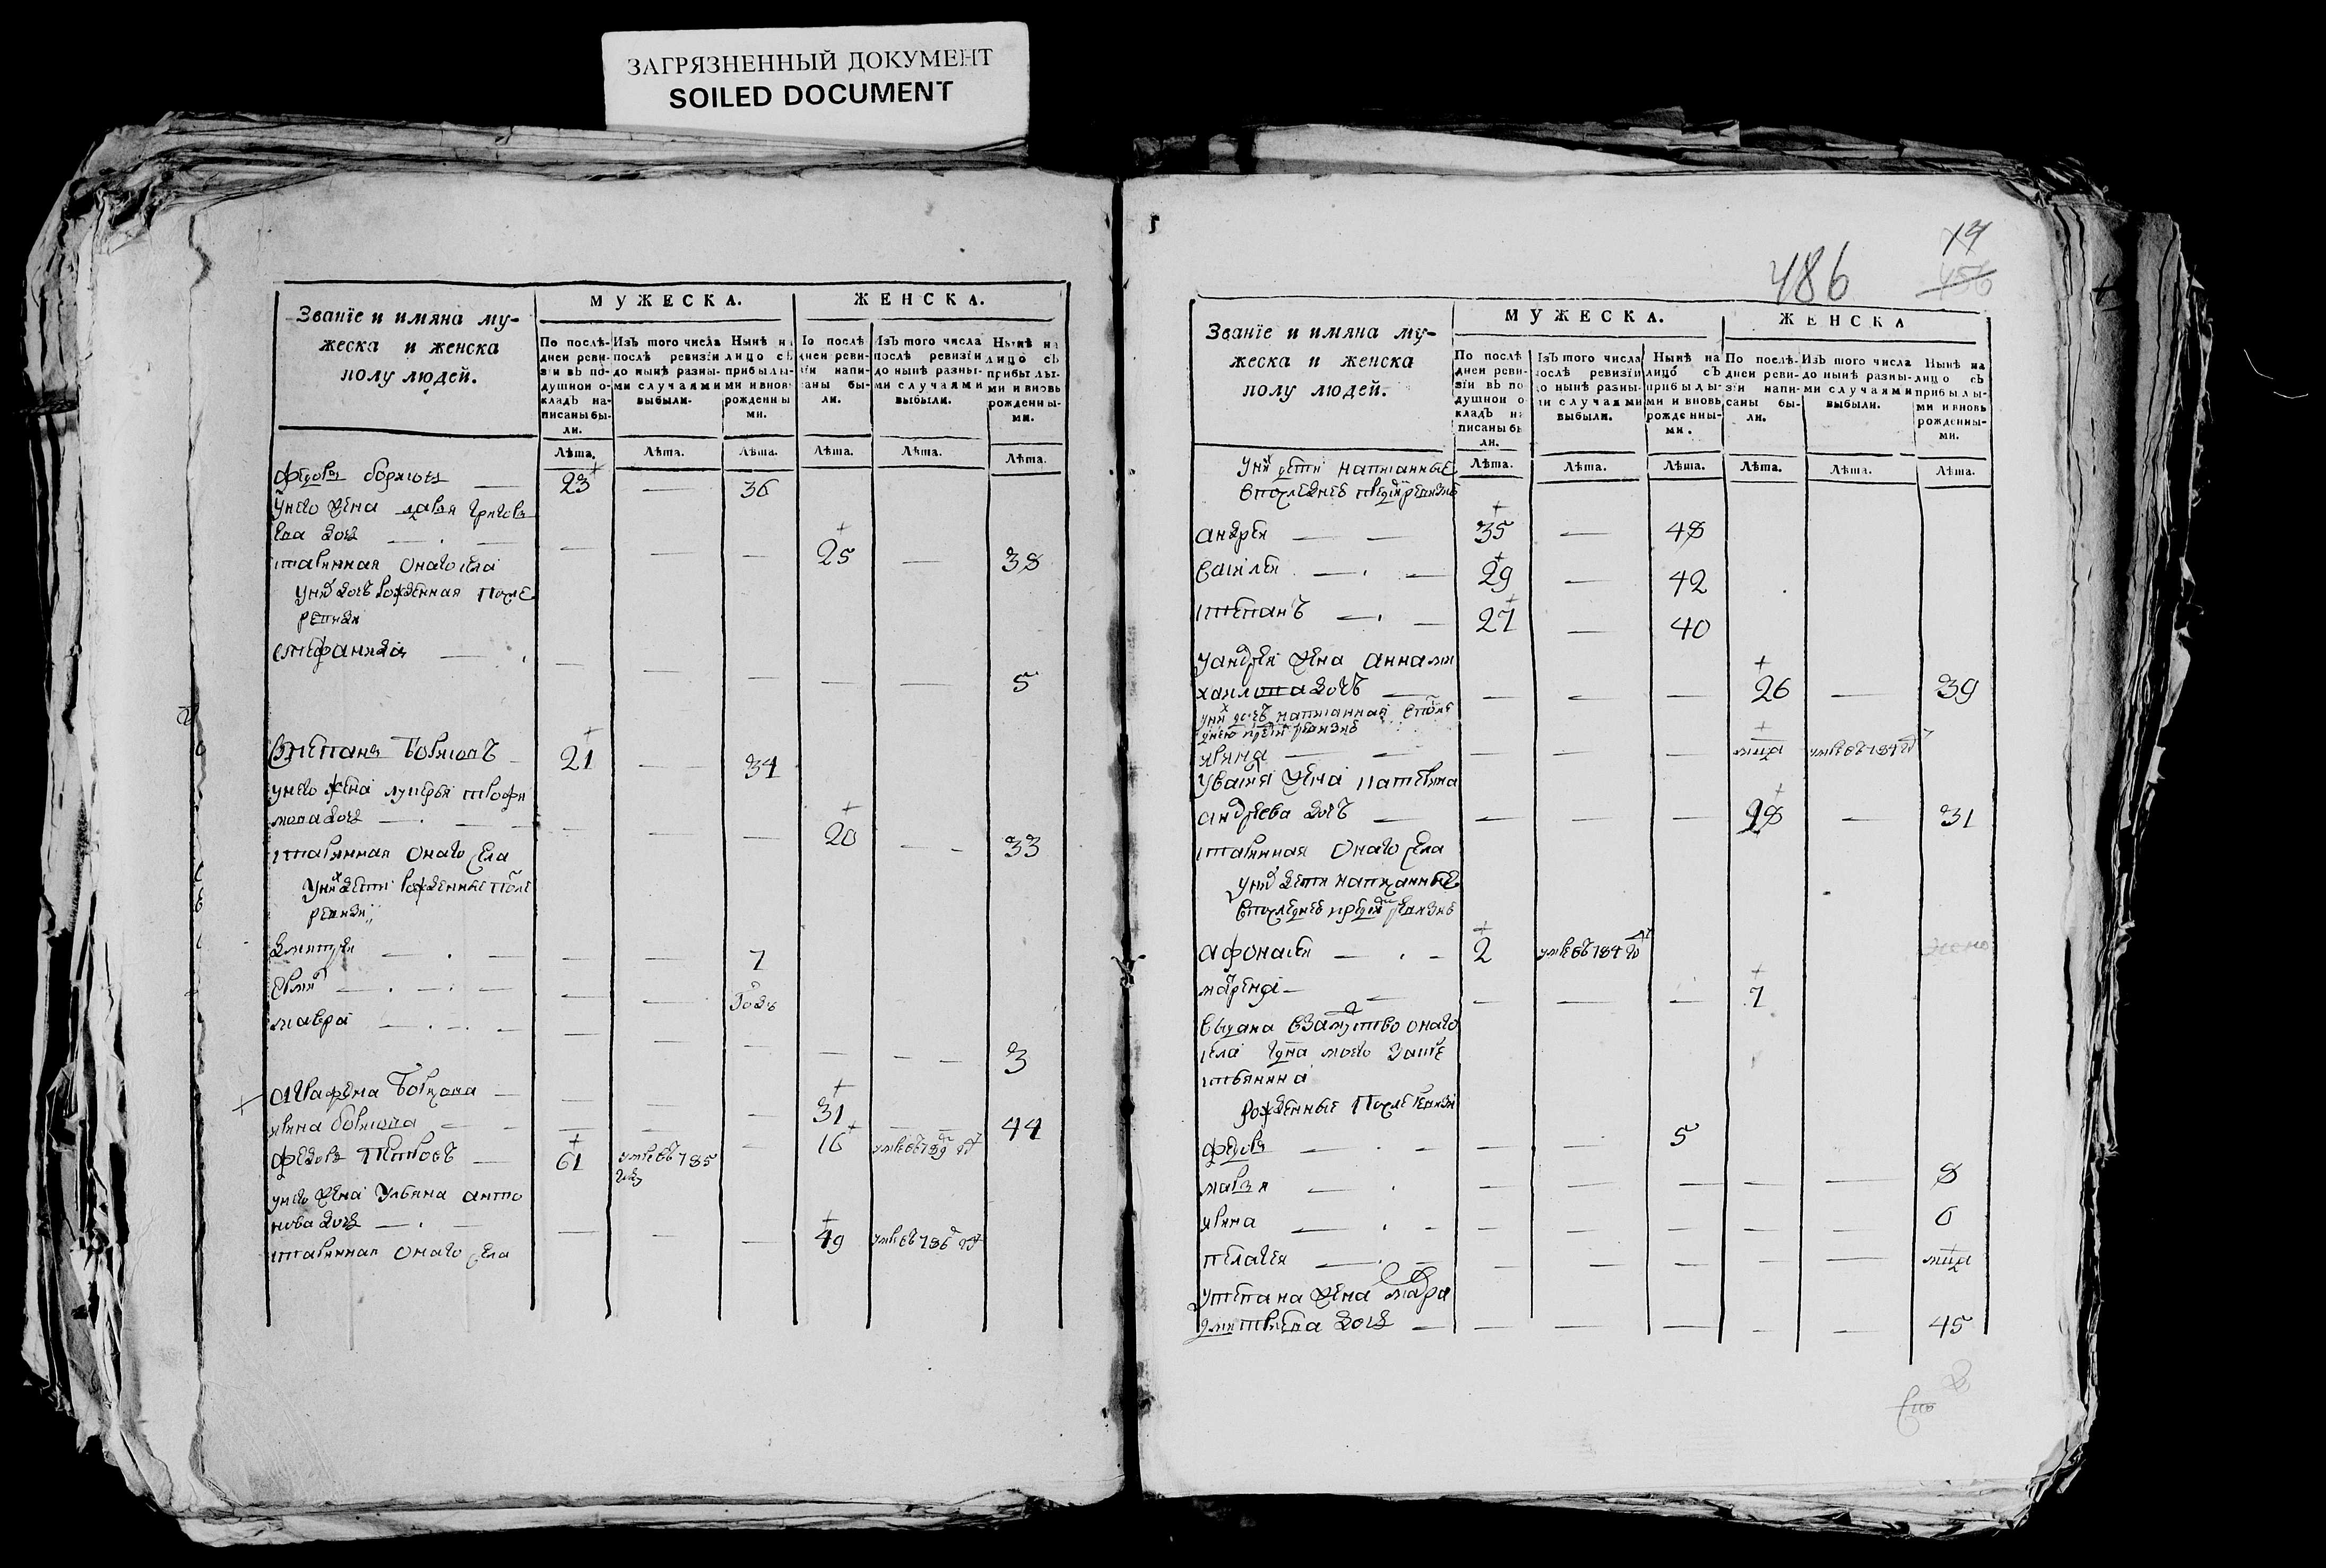 ЗАГРЯЗНЕННЫЙ ДОКУМЕНТ
SOILED DOCUMENT
Званїе и имяна му-
жеска и женска
полу людей.
МУЖЕСКА.
ЖЕНСКА.
По послѣ-
дней реви-
зїи въ по-
душной о-
кладъ на-
писаны бы-
ли.
Изъ того числа
послѣ ревизїи
до нынѣ разны-
ми случаями
выбыли.
Нынѣ на
лицо съ
прибылы-
ми и вновь
рожденны
ми.
По послѣ
дней реви-
зїи напи-
саны бы-
ли.
Изъ того числа
послѣ ревизїи
до нынѣ разны-
ми случаями
выбыли.
Нынѣ на
лицо съ
прибылы-
ми и вновь
рожденны-
ми.
Лѣта. Лѣта. Лѣта. Лѣта. Лѣта. Лѣта.
Федоръ Борисовъ 23 36
у него жена дарья
ева дочь 25 38
старинная онаго села
у них дочь рожденная после
ревизии
степанида 5
Степанъ Борисовъ 21 34
у него жена лукерья трофи
мова дочь 20 33
старинная онаго села
у них дети рожденные после
ревизии
дмитрей 7
годъ
мавра 3
аграфена Борисова 31 44
ирина борисова 16 умре въ 789 г
Федоръ Петровъ 61 умре въ 785
году
у него жена Ульяна анто
нова дочь 49 умре въ 786 г
старинная онаго села
486
14
456
Званїе и имяна му-
жеска и женска
полу людей.
МУЖЕСКА.
ЖЕНСКА
По послѣ
дней реви-
зїи въ по
душной о
кладъ на
писаны бы
ли.
Изъ того числа
послѣ ревизїи
до нынѣ разны-
ми случаями
выбыли.
Нынѣ на
лицо съ
прибылы-
ми и вновь
рожденны-
ми.
По послѣ-
дней реви-
зїи напи-
саны бы-
ли.
Изъ того числа
послѣ ревизїи
до нынѣ разны-
ми случаями
выбыли.
Нынѣ на
лицо съ
прибылы-
ми и вновь
рожденны-
ми.
Лѣта. Лѣта. Лѣта. Лѣта. Лѣта. Лѣта.
у них дети написанные
в последней пред сей ревизие
андрей 35 48
василей 29 42
степанъ 27 40
у андрея жена анна ми
хайлова дочь 26 39
у них дочь написанная в после
дней пред сей ревизие
ирина умре въ 784 г
у василья жена катерина
андреева дочь 18 31
старинная онаго села
у них дети написанные
в последней пред сей ревизие
афонасей 2 умре въ 784 г
7
выдана в замужство онаго
села
рожденные после ревизии
федоръ 5
марья 8
ирина 6
пелагея
у степана жена
дмитриева дочь 45